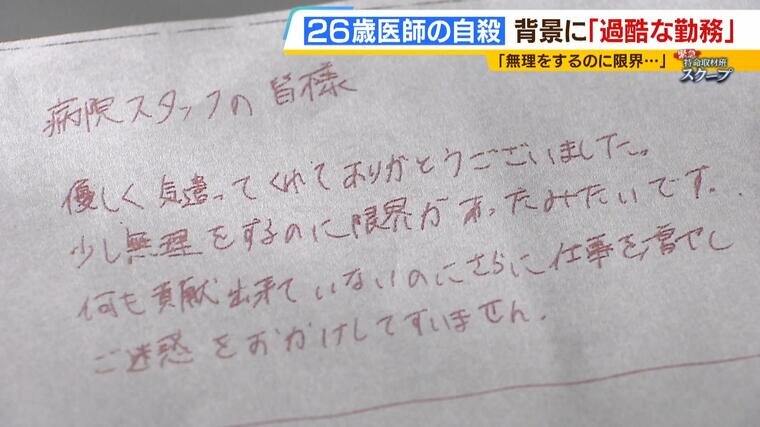 26歳医師の自殺 背景に「過酷な勤務」
「無理をするのに限界…」
緊急
特命取材班
スクープ
病院スタッフの皆様
優しく気遣ってくれてありがとうございました。
少し無理をするのに限界があったみたいです。
何も貢献出来ていないのにさらに仕事を増やし
ご迷惑をおかけしてすいません.